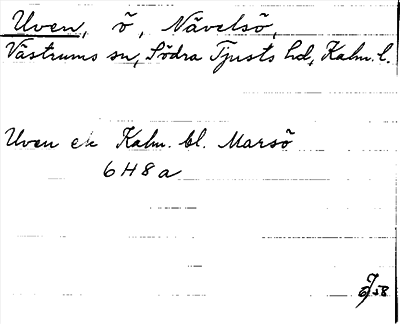 Uven, ö, Nävelsö,
Västrums sn, Södra Tjusts hd, Kalm. l.
Uven ek Kalm. bl. Marsö
6H8a